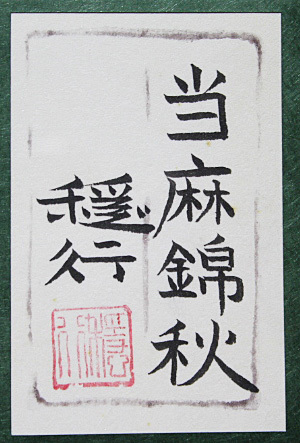 当麻錦秋
穏行